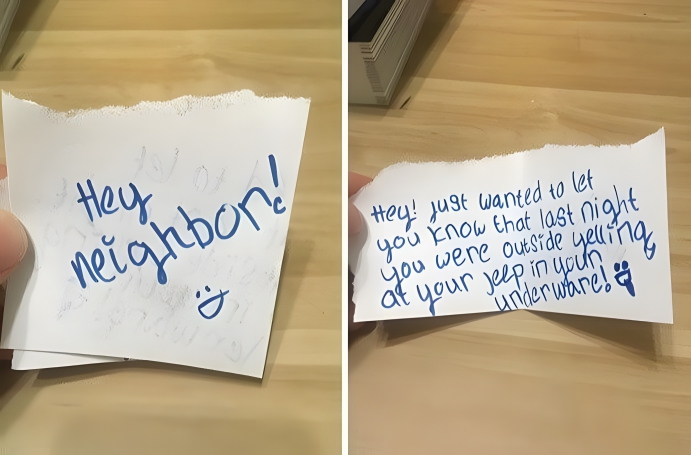 Hey
neighbor!
Hey! just wanted to let
you know that last night
you were outside yelling
at your jeep in your
underware!